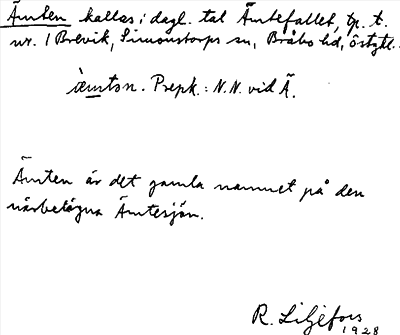 Ämten kallas i dagl. tal Ämtefallet, tp. t.
nr. 1 Brevik, Simonstorps sn, Bråbo hd, Östgtl.
ämtən. Prepk.: N.N. vid Ä.
Ämten är det gamla namnet på den
närbelägna Ämtesjön.
R. Liljefors
1928